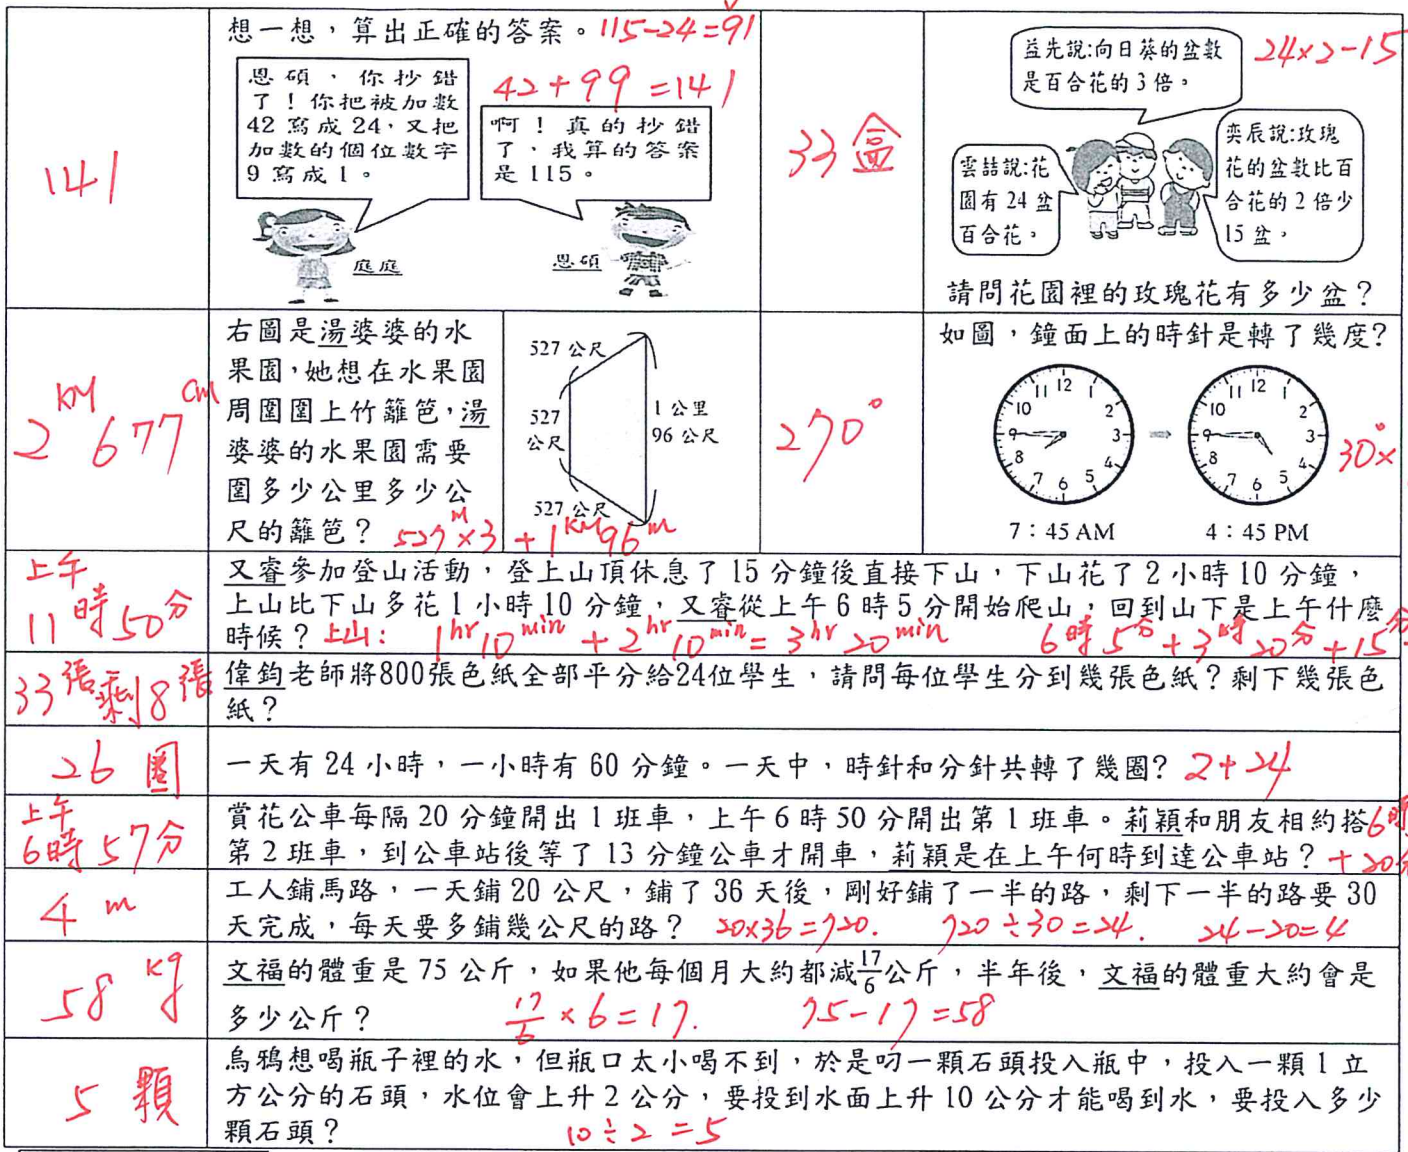 141
想一想，算出正確的答案。115-24=91
42+99=141
恩碩，你抄錯
了！你把被加數
42寫成24，又把
加數的個位數字
9寫成1。
啊！真的抄錯
了，我算的答案
是115。
庭庭
恩碩
33盒
24×2-15
益先說:向日葵的盆數
是百合花的3倍。
雲喆說:花
園有24盆
百合花。
奕辰說:玫瑰
花的盆數比百
合花的2倍少
15盆。
請問花園裡的玫瑰花有多少盆？
2KM677cm
右圖是湯婆婆的水
果園，她想在水果園
周圍圍上竹籬笆，湯
婆婆的水果園需要
圍多少公里多少公
尺的籬笆？527M×3+1KM96m
527公尺
527
公尺
527公尺
1公里
96公尺
270°
如圖，鐘面上的時針是轉了幾度?
12 1 2 3 4 5 6 7 8 9 10 11
12 1 2 3 4 5 6 7 8 9 10 11
30°×
7：45 AM
4：45 PM
上午
11時50分
又睿參加登山活動，登上山頂休息了15分鐘後直接下山，下山花了2小時10分鐘，
上山比下山多花1小時10分鐘，又睿從上午6時5分開始爬山，回到山下是上午什麼
時候？上山：1hr10min+2hr10min=3hr20min 6時5分+3時20分+15分
33張剩8張
偉鈞老師將800張色紙全部平分給24位學生，請問每位學生分到幾張色紙？剩下幾張色
紙？
26圈
一天有24小時，一小時有60分鐘。一天中，時針和分針共轉了幾圈?2+24
上午
6時57分
賞花公車每隔20分鐘開出1班車，上午6時50分開出第1班車。莉穎和朋友相約搭6時
第2班車，到公車站後等了13分鐘公車才開車，莉穎是在上午何時到達公車站？+20分
4m
工人鋪馬路，一天鋪20公尺，鋪了36天後，剛好鋪了一半的路，剩下一半的路要30
天完成，每天要多鋪幾公尺的路？20×36=720. 720÷30=24. 24-20=4
58kg
文福的體重是75公斤，如果他每個月大約都減17/6公斤，半年後，文福的體重大約會是
多少公斤？17/6×6=17. 75-17=58
5顆
烏鴉想喝瓶子裡的水，但瓶口太小喝不到，於是叼一顆石頭投入瓶中，投入一顆1立
方公分的石頭，水位會上升2公分，要投到水面上升10公分才能喝到水，要投入多少
顆石頭？10÷2=5